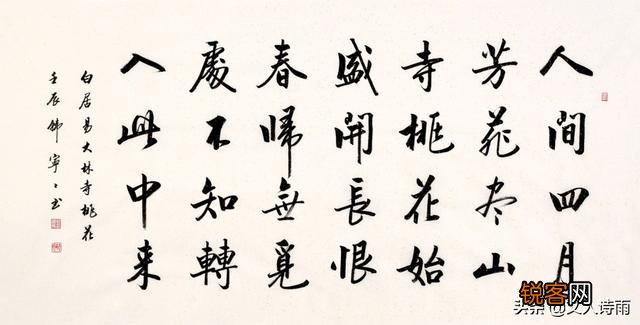 人間四月
芳菲尽山
寺桃花始
盛開長恨
春帰無覓
處不知轉
入此中来
白居易大林寺桃花
壬辰 寧〻书
锐客网
头条 @文人诗雨